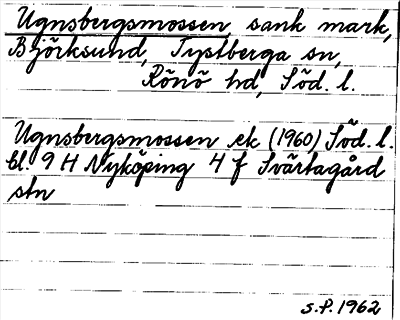 Ugnsbergsmossen, sank mark,
Björksund, Tystberga sn,
Rönö hd, Söd. l.
Ugnsbergsmossen ek (1960) Söd. l.
bl. 9 H Nyköping 4 f Svärtagård
stn
S.P. 1962